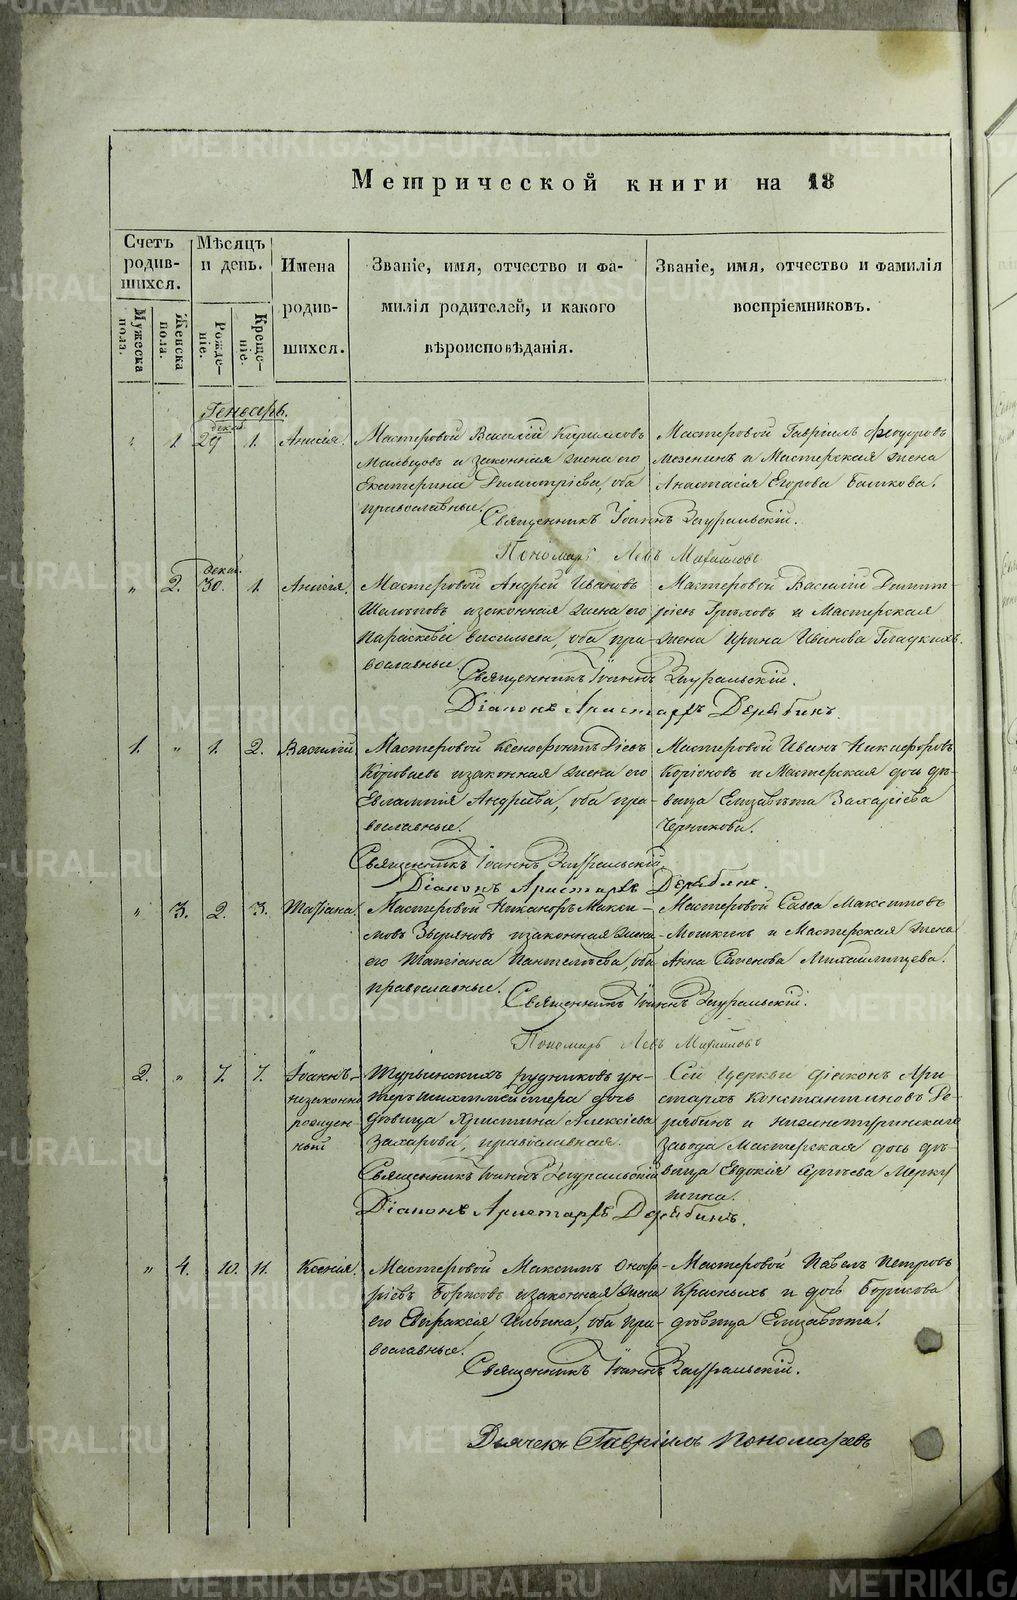 Метрической книги на 18
Счетъ родившихся.
Мѣсяцъ и день.
Имена родившихся.
Званіе, имя, отчество и фамилія родителей, и какого вѣроисповѣданія.
Званіе, имя, отчество и фамилія воспріемниковъ.
Мужеска пола.
Женска пола.
Рожденіе.
Крещеніе.
Генварь.
" 1. декаб. 29 1. Анисія.
Мастеровой Василій Кириловъ
Мальцовъ и законная жена его
Екатерина Димитріева, оба
православные.
Мастеровой Гавріилъ Феодоровъ
Мезенинъ и Мастерская жена
Анастасія Егорова Башкова.
Священникъ Іоаннъ Зауральскій.
Пономарь Левъ Михайловъ
" 2. декаб. 30. 1. Анисія.
Мастеровой Андрей Ивановъ
и законная жена его
Параскева Васильева, оба пра-
вославные.
Мастеровой Василій Димит-
ріевъ и Мастерская
жена Ирина Иванова Гладкихъ.
Священникъ Іоаннъ Зауральскій.
Діаконъ Аристархъ Дерябинъ.
1. " 1. 2. Василій
Мастеровой Ксенофонтъ
и законная жена его
Евлампія Андреева, оба пра-
вославные.
Мастеровой Иванъ Никифоровъ
и Мастерская дочь дѣ-
вица Елизавета Захаріева
Черникова.
Священникъ Іоаннъ Зауральскій.
Діаконъ Аристархъ Дерябинъ.
" 3. 2. 3. Татіана.
Мастеровой Никаноръ Макси-
мовъ и законная жена
его Татіана Пантелѣева, оба
православные.
Мастеровой Савва Максимовъ
Мошкинъ и Мастерская жена
Анна Семенова Михайлищева.
Священникъ Іоаннъ Зауральскій.
Пономарь Левъ Михайловъ
2. " 7. 7. Іоаннъ,
незаконно
рожден-
ный
Турьинскихъ рудниковъ ун-
теръ шихтмейстера дочь
дѣвица Христина Алексіева
Захарова, православная.
Сей Церкви діаконъ Ари-
стархъ Константиновъ Де-
рябинъ и Нижнетуринскаго
Завода Мастерская дочь дѣ-
вица Евдокія Сергѣева Мерку
шина.
Священникъ Іоаннъ Зауральскій
Діаконъ Аристархъ Дерябинъ.
" 4. 10. 11. Ксенія.
Мастеровой Максимъ Оноф-
ріевъ Борисовъ и законная жена
его Евпраксія Ильина, оба пра-
вославные.
Мастеровой Павелъ Петровъ
Красныхъ и дочь Борисова
дѣвица Елизавета.
Священникъ Іоаннъ Зауральскій.
Дьячекъ Гавріилъ Пономаревъ
METRIKI.GASO-URAL.RU